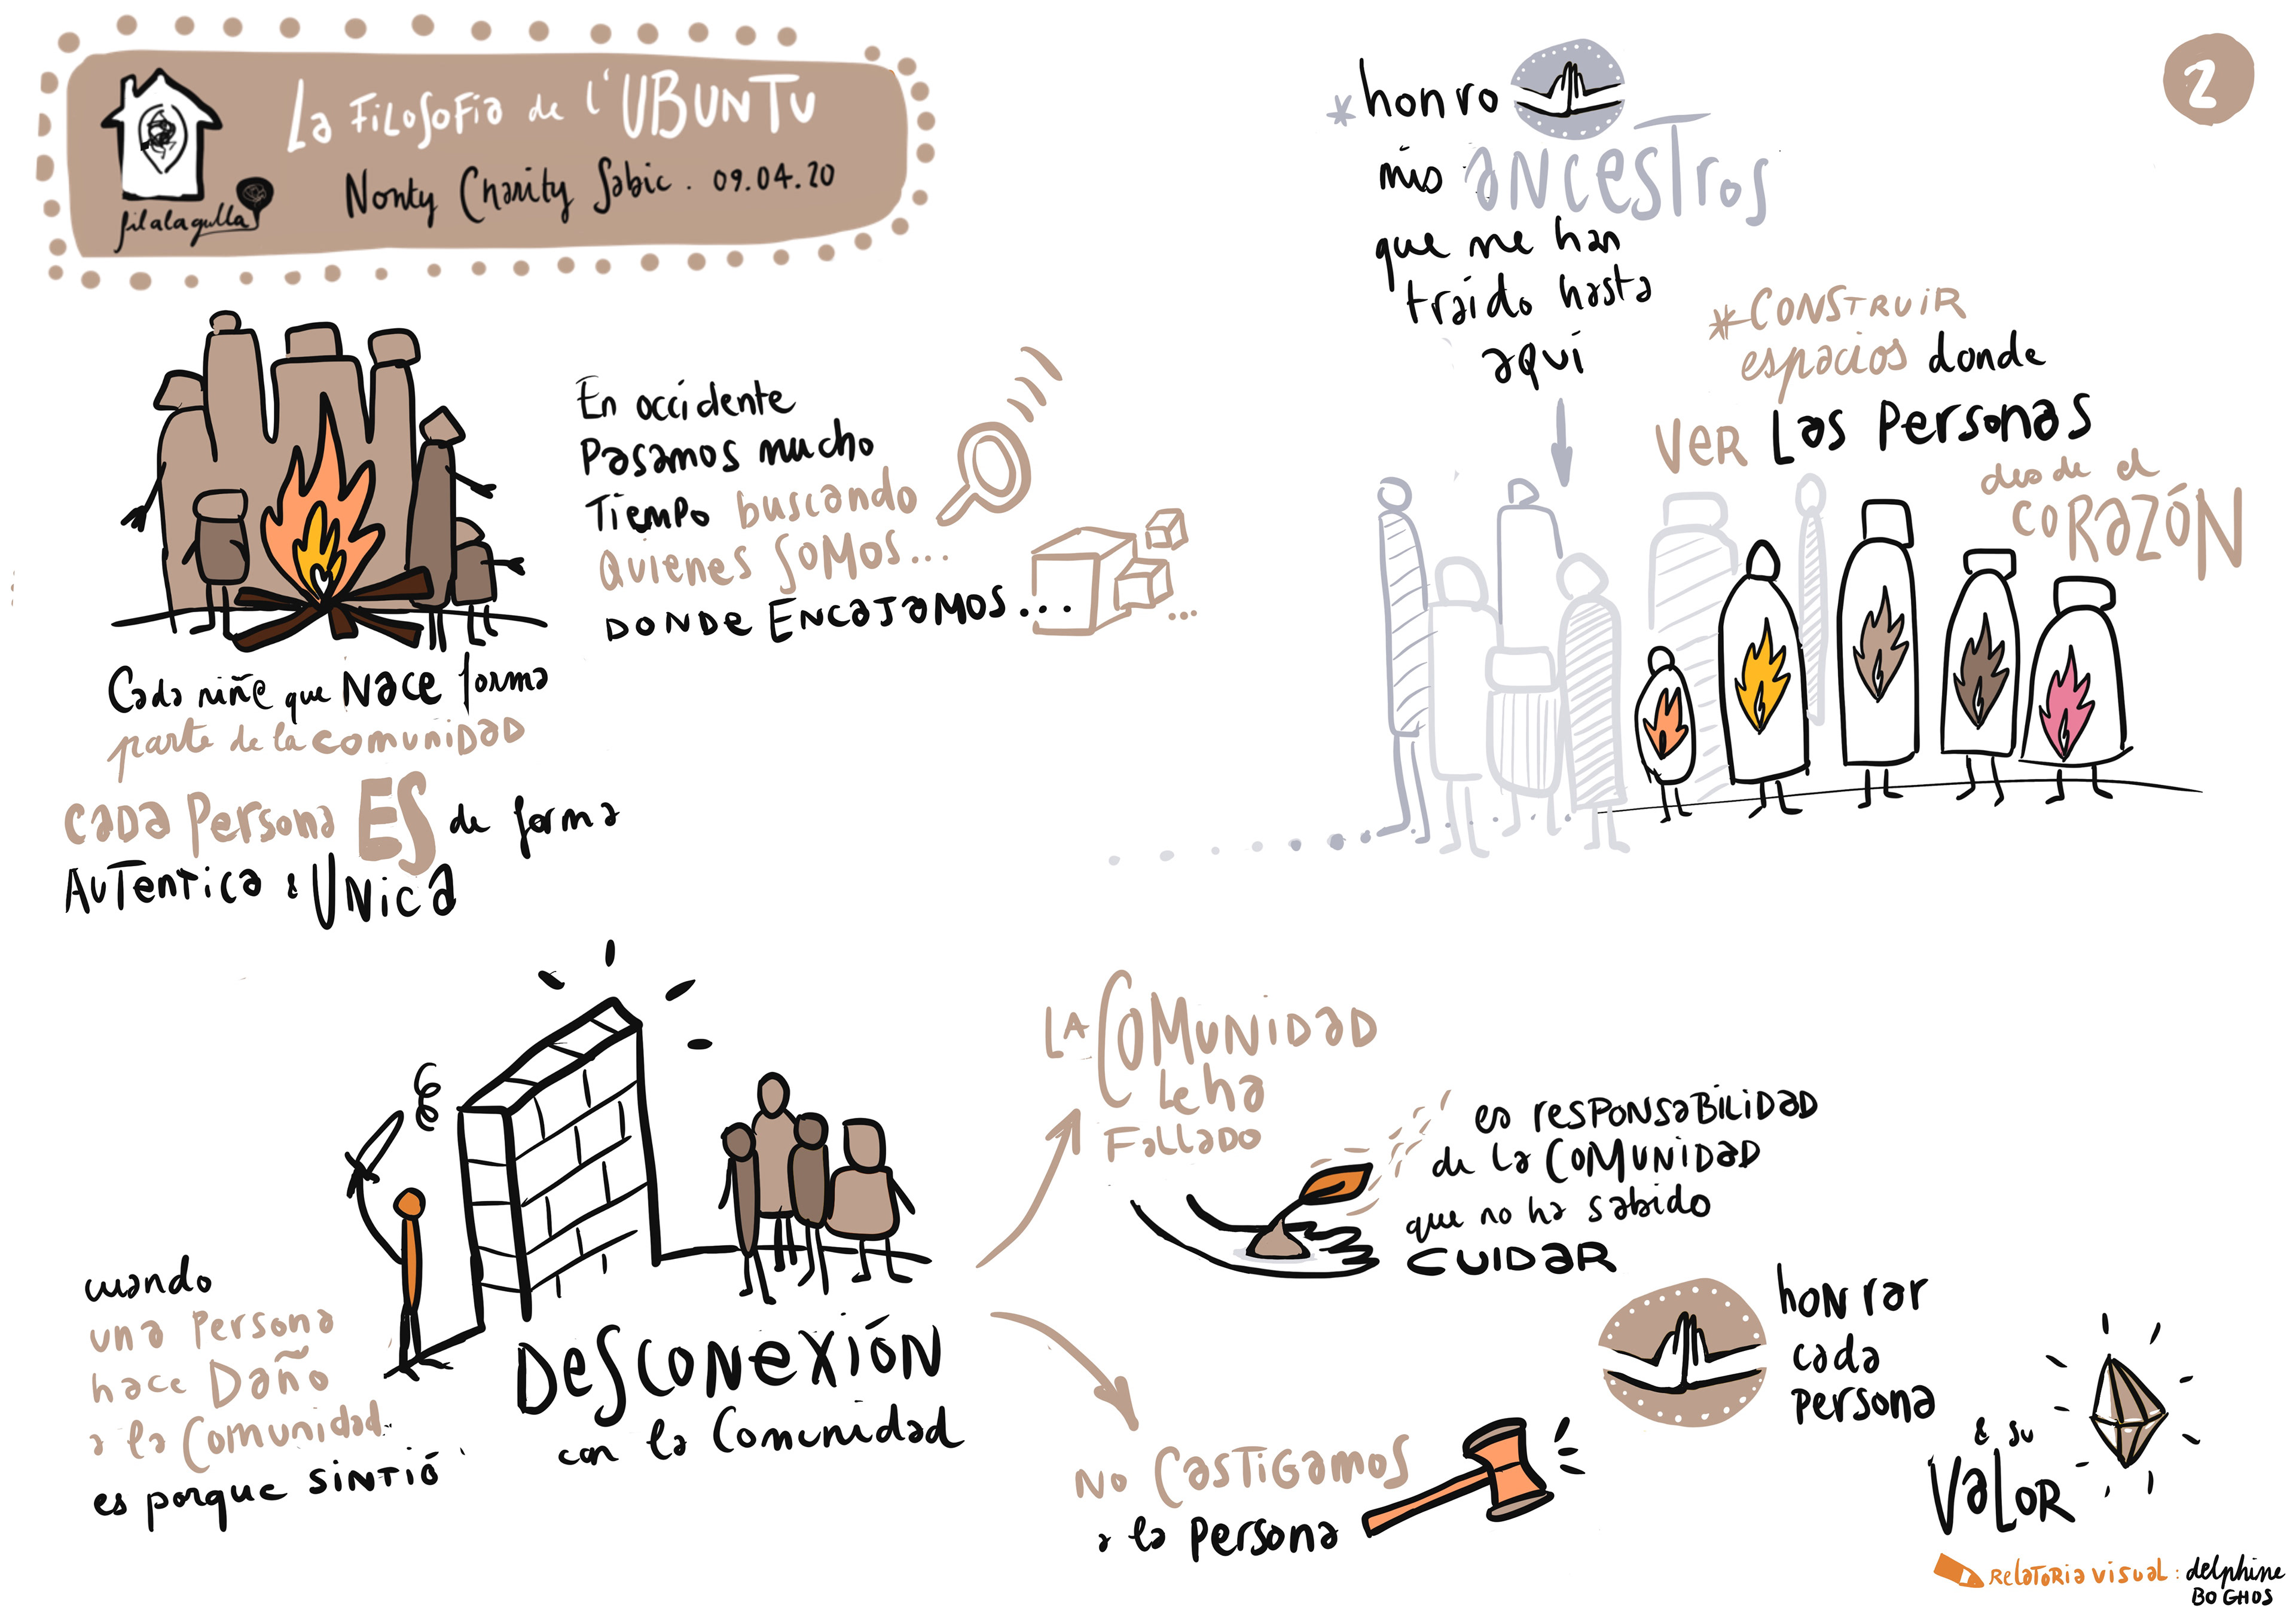 La Filosofia de l'UBUNTU
Nonty Charity Sabic . 09.04.20
filalagulla
2
honro
mis ancestros
que me han
traido hasta
aquí
*CONSTRUIR
espacios donde
Ver Las Personas
desde el
CORAZÓN
En occidente
Pasamos mucho
Tiempo buscando
Quienes Somos...
DONDE ENCAJAMOS...
...
Cada niñe que Nace forma
parte de la comunidad
Cada Persona ES de forma
Autentica & Unica
cuando
una Persona
hace Daño
a la Comunidad
es porque sintió
Desconexión
con la Comunidad
La Comunidad
Le ha
Fallado
es responsabilidad
de la Comunidad
que no ha sabido
CUIDAR
No Castigamos
a la Persona
honrar
cada
persona
& su
Valor
Relatoria visual : delphine
BOGHOS